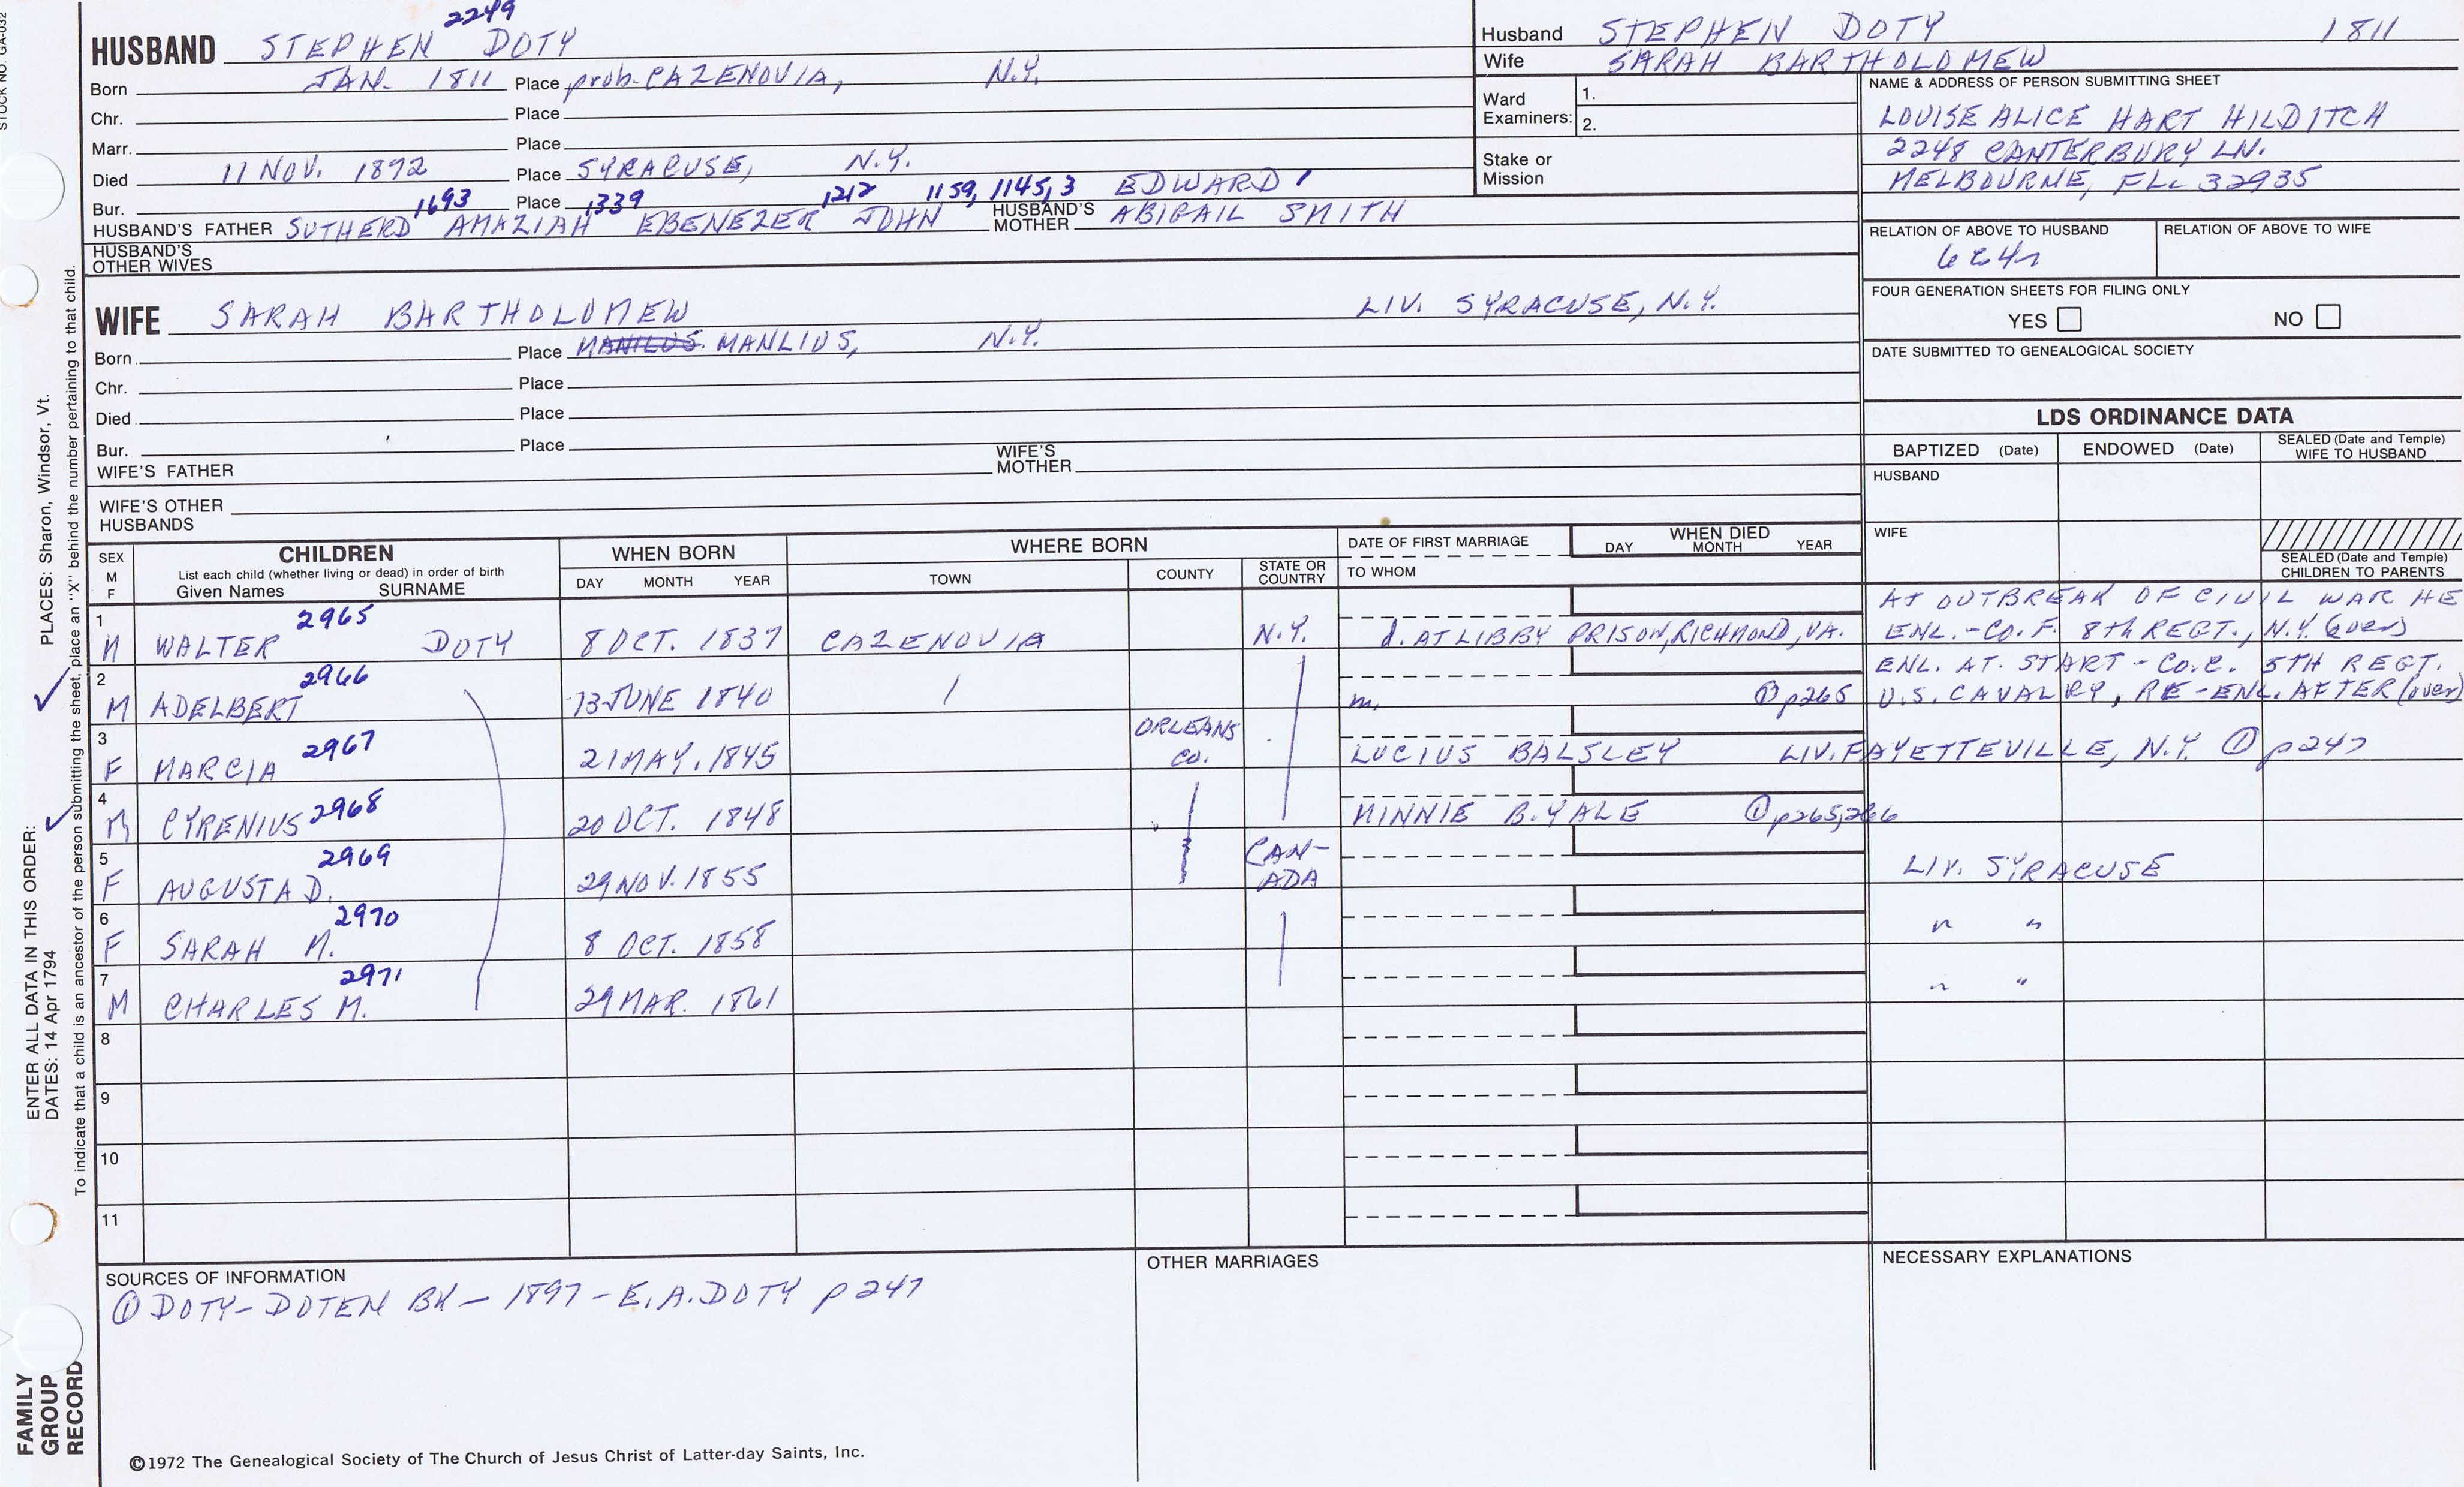 STOCK NO. GA-032
2249
HUSBAND STEPHEN DOTY
Born JAN. 1811 Place prob. CAZENOVIA, N.Y.
Chr. Place
Marr. Place
Died 11 NOV. 1892 Place SYRACUSE, N.Y.
Bur. Place
1693 1339 1212 1159, 1145, 3 EDWARD 1
HUSBAND'S FATHER SUTHERD AMAZIAH EBENEZER JOHN HUSBAND'S MOTHER ABIGAIL SMITH
HUSBAND'S OTHER WIVES
WIFE SARAH BARTHOLOMEW LIV. SYRACUSE, N.Y.
Born Place MANILUS MANLIUS, N.Y.
Chr. Place
Died Place
Bur. Place
WIFE'S FATHER WIFE'S MOTHER
WIFE'S OTHER HUSBANDS
Husband STEPHEN DOTY 1811
Wife SARAH BARTHOLOMEW
Ward Examiners: 1.
2.
Stake or Mission
NAME & ADDRESS OF PERSON SUBMITTING SHEET
LOUISE ALICE HART HILDITCH
2248 CANTERBURY LN.
MELBOURNE, FL. 32935
RELATION OF ABOVE TO HUSBAND RELATION OF ABOVE TO WIFE
FOUR GENERATION SHEETS FOR FILING ONLY
YES NO
DATE SUBMITTED TO GENEALOGICAL SOCIETY
LDS ORDINANCE DATA
BAPTIZED (Date) ENDOWED (Date) SEALED (Date and Temple) WIFE TO HUSBAND
HUSBAND
WIFE
SEALED (Date and Temple) CHILDREN TO PARENTS
SEX M F
CHILDREN
List each child (whether living or dead) in order of birth
Given Names SURNAME
WHEN BORN
DAY MONTH YEAR
WHERE BORN
TOWN COUNTY STATE OR COUNTRY
DATE OF FIRST MARRIAGE
TO WHOM
WHEN DIED
DAY MONTH YEAR
1 2965 AT OUTBREAK OF CIVIL WAR HE
M WALTER DOTY 8 OCT. 1837 CAZENOVIA N.Y. d. AT LIBBY PRISON, RICHMOND, VA. ENL. - CO. F. 8th REGT., N.Y. (over)
2 2966 ENL. AT. START - CO. C. 5TH REGT.
M ADELBERT 13 JUNE 1840 m. ① p265 U.S. CAVALRY, RE-ENL. AFTER (over)
3 2967
F MARCIA 21 MAY. 1845 ORLEANS CO. LUCIUS BALSLEY LIV. FAYETTEVILLE, N.Y. ① p247
4 2968
M CYRENIUS 20 OCT. 1848 MINNIE B. YALE ① p265,266
5 2969
F AUGUSTA D. 29 NOV. 1855 CAN-ADA LIV. SYRACUSE
6 2970
F SARAH M. 8 OCT. 1858 " "
7 2971
M CHARLES M. 29 MAR. 1861 " "
8
9
10
11
SOURCES OF INFORMATION
① DOTY-DOTEN BK - 1897 - E.A. DOTY p 247
OTHER MARRIAGES
NECESSARY EXPLANATIONS
©1972 The Genealogical Society of The Church of Jesus Christ of Latter-day Saints, Inc.
FAMILY GROUP RECORD
ENTER ALL DATA IN THIS ORDER:
DATES: 14 Apr 1794
PLACES: Sharon, Windsor, Vt.
To indicate that a child is an ancestor of the person submitting the sheet, place an "X" behind the number pertaining to that child.